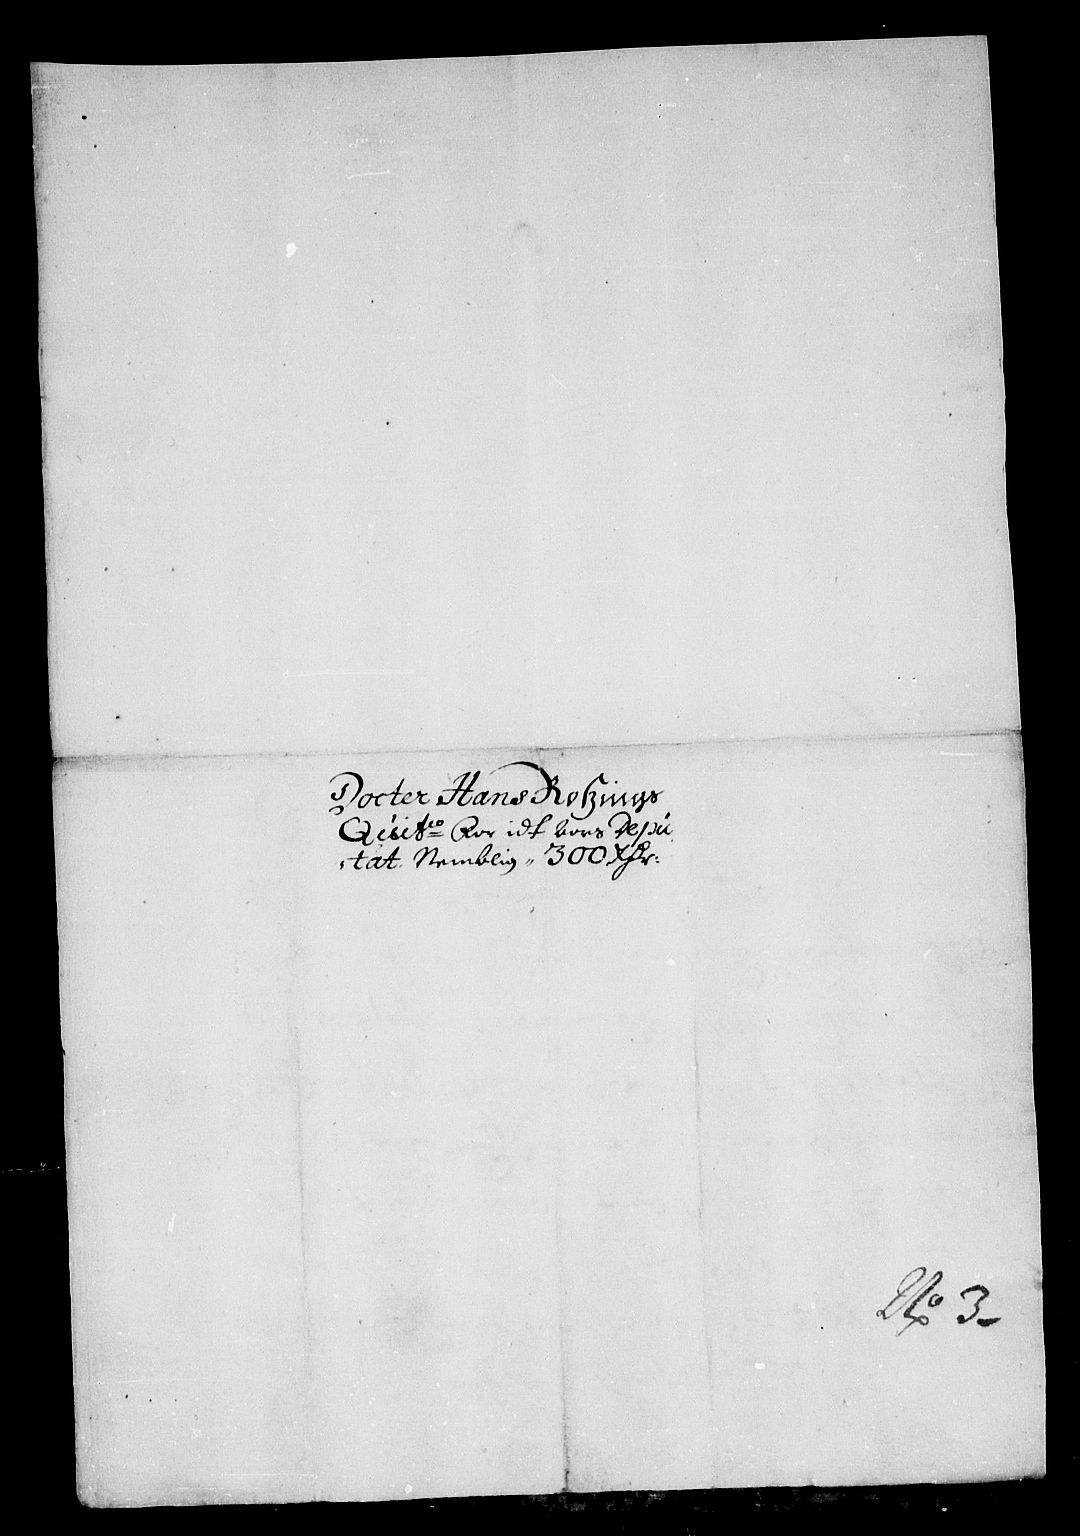 Docter Hans Roszings
Quit^co for idt Aars Depu
tat Nemblig 300 Rdr:
No 3